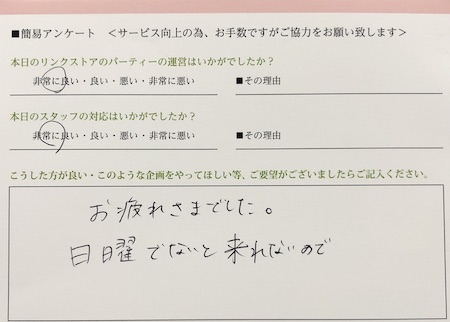 ■簡易アンケート <サービス向上の為、お手数ですがご協力をお願い致します>
本日のリンクストアのパーティーの運営はいかがでしたか?
非常に良い・良い・悪い・非常に悪い ■その理由
本日のスタッフの対応はいかがでしたか?
非常に良い・良い・悪い・非常に悪い ■その理由
こうした方が良い・このような企画をやってほしい等、ご要望がございましたらご記入ください。
お疲れさまでした。
日曜でないと来れないので